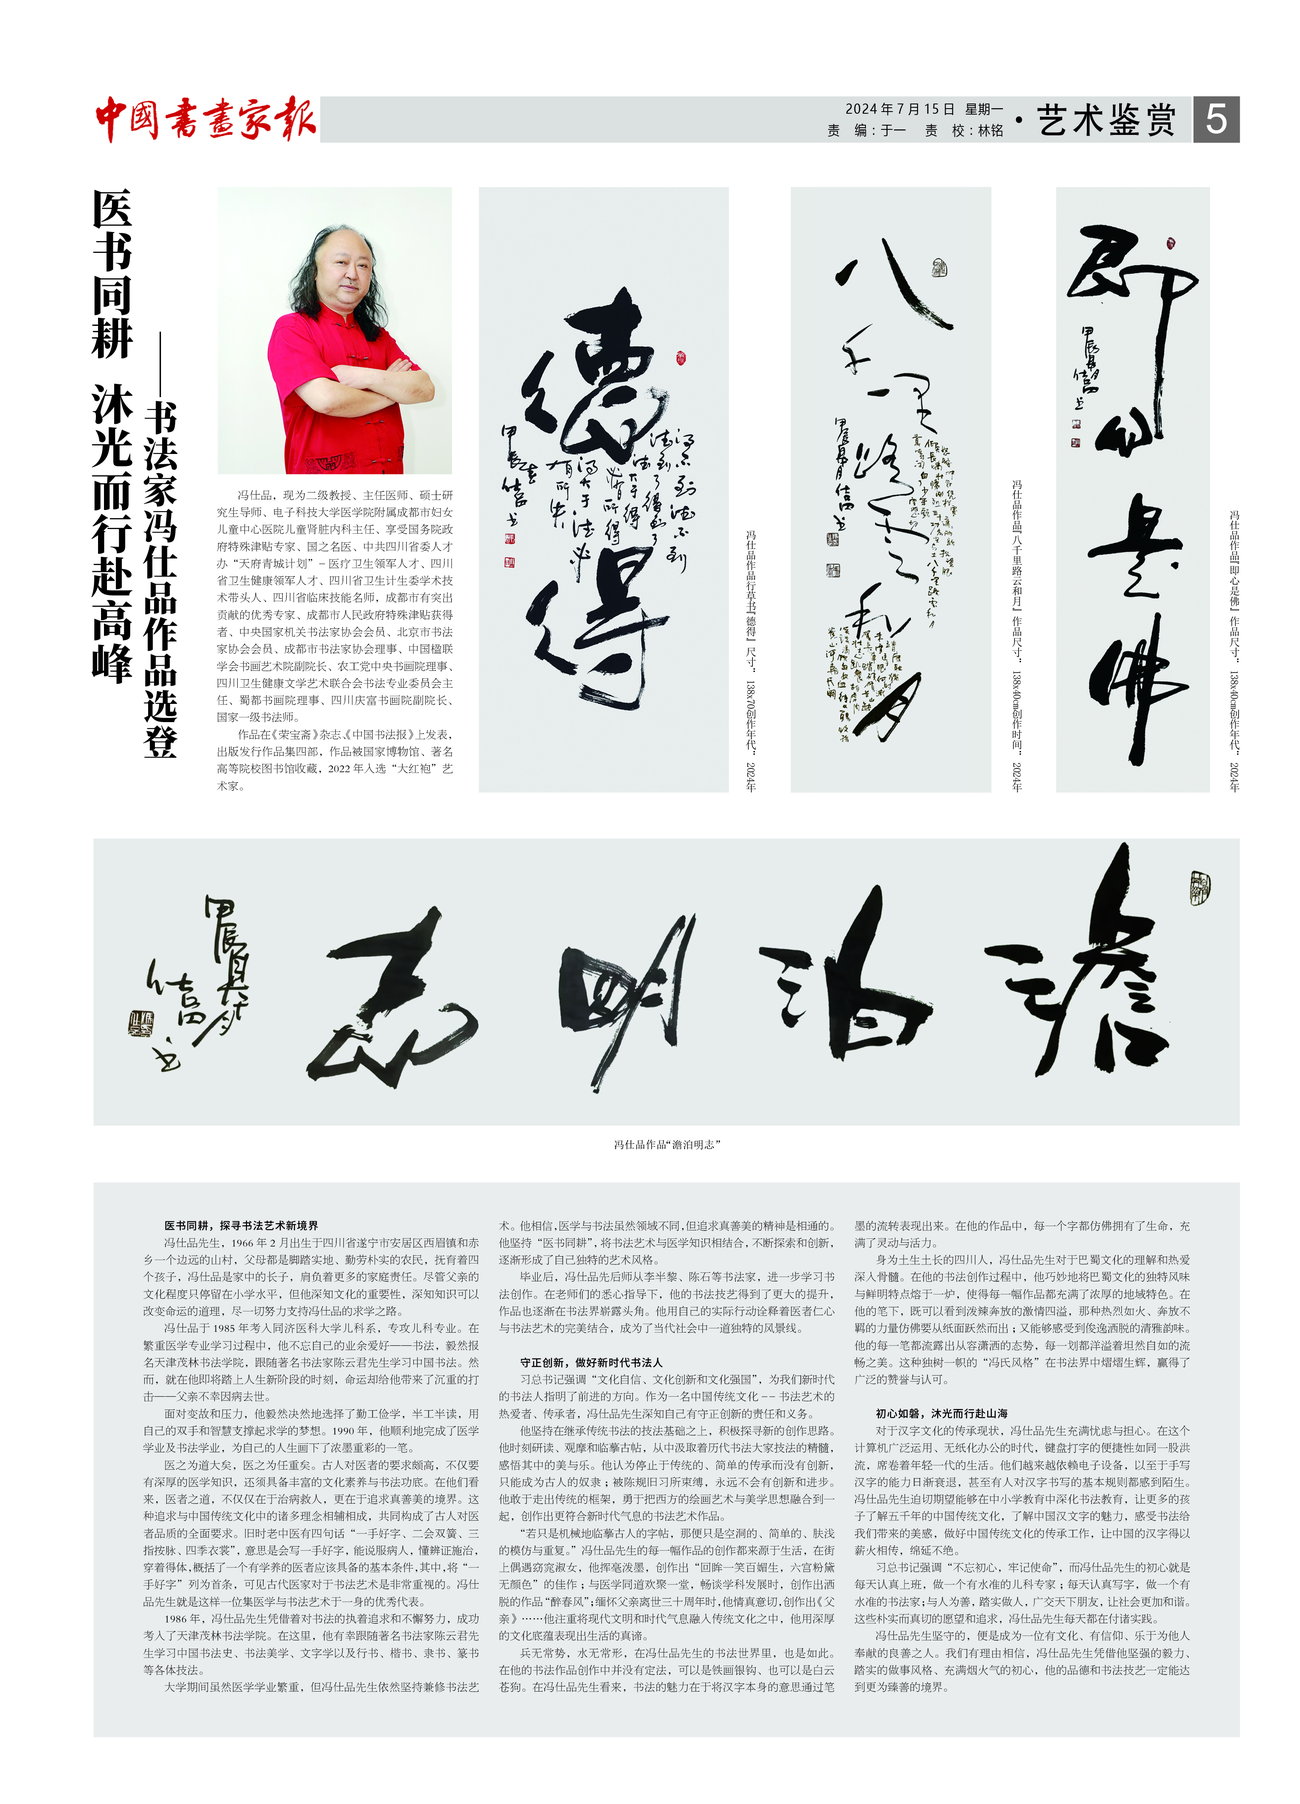 中國書畫家報
2024年7月15日 星期一
责 编：于一 责 校：林铭
·艺术鉴赏
5
医书同耕 沐光而行赴高峰
——书法家冯仕品作品选登
冯仕品，现为二级教授、主任医师、硕士研
究生导师、电子科技大学医学院附属成都市妇女
儿童中心医院儿童肾脏内科主任、享受国务院政
府特殊津贴专家、国之名医、中共四川省委人才
办“天府青城计划”－医疗卫生领军人才、四川
省卫生健康领军人才、四川省卫生计生委学术技
术带头人、四川省临床技能名师，成都市有突出
贡献的优秀专家、成都市人民政府特殊津贴获得
者、中央国家机关书法家协会会员、北京市书法
家协会会员、成都市书法家协会理事、中国楹联
学会书画艺术院副院长、农工党中央书画院理事、
四川卫生健康文学艺术联合会书法专业委员会主
任、蜀都书画院理事、四川庆富书画院副院长、
国家一级书法师。
作品在《荣宝斋》杂志、《中国书法报》上发表，
出版发行作品集四部，作品被国家博物馆、著名
高等院校图书馆收藏，2022年入选“大红袍”艺
术家。
德得
甲辰
冯仕品作品行草书『德得』尺寸：138x70创作年代：2024年
八千里路云和月
冯仕品作品『八千里路云和月』作品尺寸：138x40cm创作时间：2024年
即心是佛
冯仕品作品『即心是佛』作品尺寸：138x40cm创作年代：2024年
澹泊明志
冯仕品作品“澹泊明志”
医书同耕，探寻书法艺术新境界
冯仕品先生，1966年2月出生于四川省遂宁市安居区西眉镇和赤
乡一个边远的山村，父母都是脚踏实地、勤劳朴实的农民，抚育着四
个孩子，冯仕品是家中的长子，肩负着更多的家庭责任。尽管父亲的
文化程度只停留在小学水平，但他深知文化的重要性，深知知识可以
改变命运的道理，尽一切努力支持冯仕品的求学之路。
冯仕品于1985年考入同济医科大学儿科系，专攻儿科专业。在
繁重医学专业学习过程中，他不忘自己的业余爱好——书法，毅然报
名天津茂林书法学院，跟随著名书法家陈云君先生学习中国书法。然
而，就在他即将踏上人生新阶段的时刻，命运却给他带来了沉重的打
击——父亲不幸因病去世。
面对变故和压力，他毅然决然地选择了勤工俭学，半工半读，用
自己的双手和智慧支撑起求学的梦想。1990年，他顺利地完成了医学
学业及书法学业，为自己的人生画下了浓墨重彩的一笔。
医之为道大矣，医之为任重矣。古人对医者的要求颇高，不仅要
有深厚的医学知识，还须具备丰富的文化素养与书法功底。在他们看
来，医者之道，不仅仅在于治病救人，更在于追求真善美的境界。这
种追求与中国传统文化中的诸多理念相辅相成，共同构成了古人对医
者品质的全面要求。旧时老中医有四句话“一手好字、二会双簧、三
指按脉、四季衣裳”，意思是会写一手好字，能说服病人，懂辨证施治，
穿着得体，概括了一个有学养的医者应该具备的基本条件，其中，将“一
手好字”列为首条，可见古代医家对于书法艺术是非常重视的。冯仕
品先生就是这样一位集医学与书法艺术于一身的优秀代表。
1986年，冯仕品先生凭借着对书法的执着追求和不懈努力，成功
考入了天津茂林书法学院。在这里，他有幸跟随著名书法家陈云君先
生学习中国书法史、书法美学、文字学以及行书、楷书、隶书、篆书
等各体技法。
大学期间虽然医学学业繁重，但冯仕品先生依然坚持兼修书法艺
术。他相信，医学与书法虽然领域不同，但追求真善美的精神是相通的。
他坚持“医书同耕”，将书法艺术与医学知识相结合，不断探索和创新，
逐渐形成了自己独特的艺术风格。
毕业后，冯仕品先后师从李半黎、陈石等书法家，进一步学习书
法创作。在老师们的悉心指导下，他的书法技艺得到了更大的提升，
作品也逐渐在书法界崭露头角。他用自己的实际行动诠释着医者仁心
与书法艺术的完美结合，成为了当代社会中一道独特的风景线。
守正创新，做好新时代书法人
习总书记强调“文化自信、文化创新和文化强国”，为我们新时代
的书法人指明了前进的方向。作为一名中国传统文化－－书法艺术的
热爱者、传承者，冯仕品先生深知自己有守正创新的责任和义务。
他坚持在继承传统书法的技法基础之上，积极探寻新的创作思路。
他时刻研读、观摩和临摹古帖，从中汲取着历代书法大家技法的精髓，
感悟其中的美与乐。他认为停止于传统的、简单的传承而没有创新，
只能成为古人的奴隶；被陈规旧习所束缚，永远不会有创新和进步。
他敢于走出传统的框架，勇于把西方的绘画艺术与美学思想融合到一
起，创作出更符合新时代气息的书法艺术作品。
“若只是机械地临摹古人的字帖，那便只是空洞的、简单的、肤浅
的模仿与重复。”冯仕品先生的每一幅作品的创作都来源于生活，在街
上偶遇窈窕淑女，他挥毫泼墨，创作出“回眸一笑百媚生，六宫粉黛
无颜色”的佳作；与医学同道欢聚一堂，畅谈学科发展时，创作出洒
脱的作品“醉春风”；缅怀父亲离世三十周年时，他情真意切，创作出《父
亲》……他注重将现代文明和时代气息融入传统文化之中，他用深厚
的文化底蕴表现出生活的真谛。
兵无常势，水无常形，在冯仕品先生的书法世界里，也是如此。
在他的书法作品创作中并没有定法，可以是铁画银钩、也可以是白云
苍狗。在冯仕品先生看来，书法的魅力在于将汉字本身的意思通过笔
墨的流转表现出来。在他的作品中，每一个字都仿佛拥有了生命，充
满了灵动与活力。
身为土生土长的四川人，冯仕品先生对于巴蜀文化的理解和热爱
深入骨髓。在他的书法创作过程中，他巧妙地将巴蜀文化的独特风味
与鲜明特点熔于一炉，使得每一幅作品都充满了浓厚的地域特色。在
他的笔下，既可以看到泼辣奔放的激情四溢，那种热烈如火、奔放不
羁的力量仿佛要从纸面跃然而出；又能够感受到俊逸洒脱的清雅韵味。
他的每一笔都流露出从容潇洒的态势，每一划都洋溢着坦然自如的流
畅之美。这种独树一帜的“冯氏风格”在书法界中熠熠生辉，赢得了
广泛的赞誉与认可。
初心如磐，沐光而行赴山海
对于汉字文化的传承现状，冯仕品先生充满忧虑与担心。在这个
计算机广泛运用、无纸化办公的时代，键盘打字的便捷性如同一股洪
流，席卷着年轻一代的生活。他们越来越依赖电子设备，以至于手写
汉字的能力日渐衰退，甚至有人对汉字书写的基本规则都感到陌生。
冯仕品先生迫切期望能够在中小学教育中深化书法教育，让更多的孩
子了解五千年的中国传统文化，了解中国汉文字的魅力，感受书法给
我们带来的美感，做好中国传统文化的传承工作，让中国的汉字得以
薪火相传，绵延不绝。
习总书记强调“不忘初心，牢记使命”，而冯仕品先生的初心就是
每天认真上班，做一个有水准的儿科专家；每天认真写字，做一个有
水准的书法家；与人为善，踏实做人，广交天下朋友，让社会更加和谐。
这些朴实而真切的愿望和追求，冯仕品先生每天都在付诸实践。
冯仕品先生坚守的，便是成为一位有文化、有信仰、乐于为他人
奉献的良善之人。我们有理由相信，冯仕品先生凭借他坚强的毅力、
踏实的做事风格、充满烟火气的初心，他的品德和书法技艺一定能达
到更为臻善的境界。